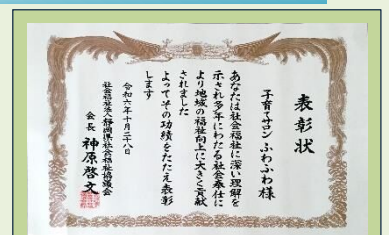 表彰状
子育てサロン ふわふわ様
あなたは社会福祉に深い理解を
示され多年にわたる社会奉仕に
より地域の福祉向上に大きく貢献
されました
よってその功績をたたえ表彰
します
令和六年十月二十八日
社会福祉法人静岡県社会福祉協議会
会長 神原啓文